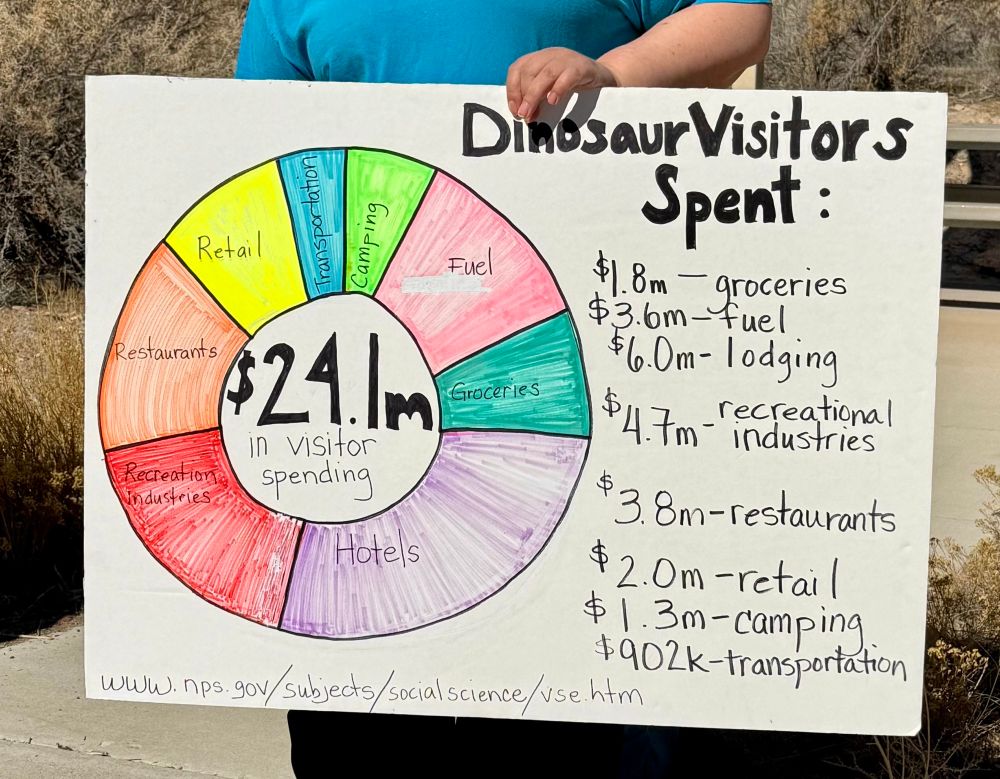 Dinosaur Visitors
Spent:
Retail
Transportation
Camping
Fuel
Restaurants
Groceries
Recreation
Industries
Hotels
$24.1m
in visitor
spending
$1.8m — groceries
$3.6m - fuel
$6.0m - lodging
$4.7m - recreational
industries
$3.8m - restaurants
$2.0m - retail
$1.3m - camping
$902k - transportation
www.nps.gov/subjects/socialscience/vse.htm